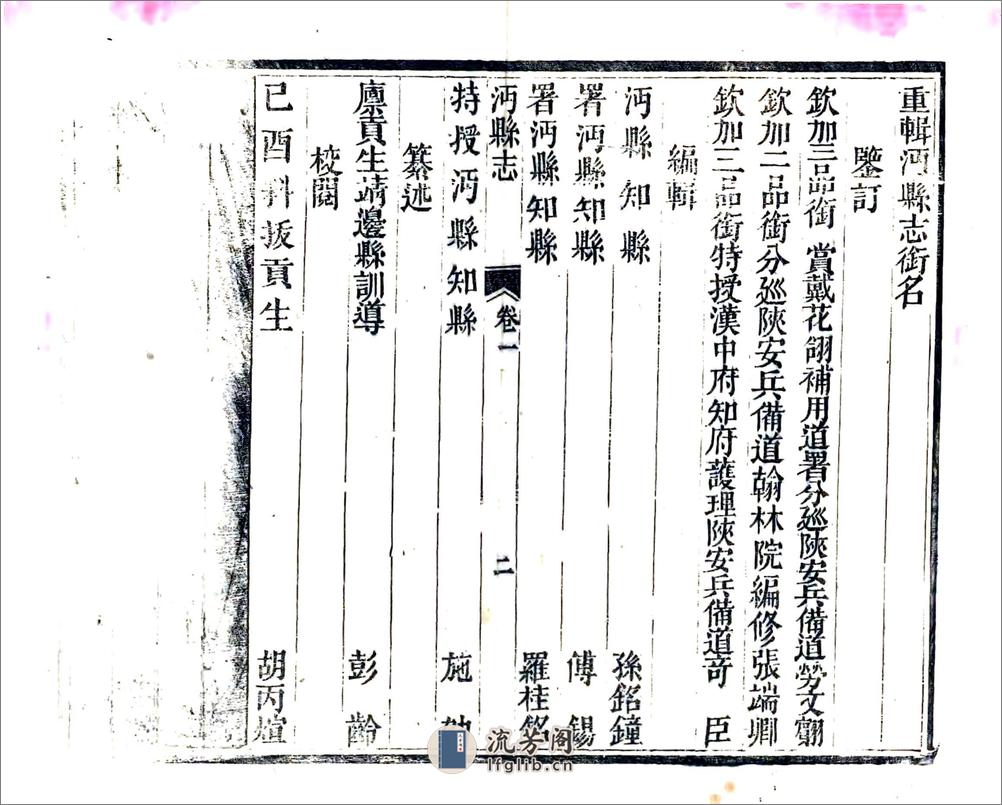 重輯沔縣志銜名
鑒訂
欽加三品銜 賞戴花翎補用道署分廵陝安兵備道勞文翽
欽加二品銜分廵陝安兵備道翰林院編修張端卿
欽加三品銜特授漢中府知府護理陝安兵備道奇 臣
編輯
沔縣知縣 孫銘鐘
署沔縣知縣 傅 錫
署沔縣知縣 羅桂銘
沔縣志 卷一 二
特授沔縣知縣 施
纂述
廩貢生靖邊縣訓導 彭 齡
校閱
己酉科拔貢生 胡丙煊
流芳阁
lfglib.cn